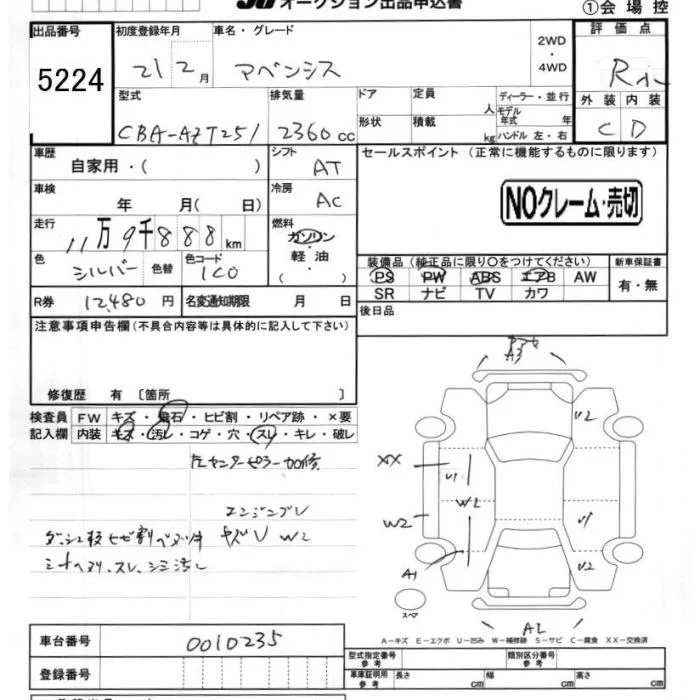 JU オークション出品申込書 ①会場控
出品番号 初度登録年月 車名・グレード 2WD・4WD 評価点
5224 21 2月 アベンシス R
型式 排気量 ドア 定員 人 ディーラー・並行 外装 内装
CBA-AZT251 2360cc 形状 積載 kg モデル年式 年 ハンドル 左・右 C D
車歴 自家用・( ) シフト AT セールスポイント (正常に機能するものに限ります)
車検 年 月( 日) 冷房 AC NOクレーム・売切
走行 11万9千888km 燃料 ガソリン・軽油・( )
色 シルバー 色替 色コード 1C0 装備品 (純正品に限り○をつけてください) 新車保証書
PS PW ABS エアB AW 有・無
SR ナビ TV カワ
R券 12,480円 名変通知期限 月 日 後日品
注意事項申告欄(不具合内容等は具体的に記入して下さい)
修復歴 有 [箇所 ]
検査員記入欄 FW キズ・飛石・ヒビ割・リペア跡・×要
内装 キズ・汚レ・コゲ・穴・スレ・キレ・破レ
左センターピラー加修
エンジン
キズU W2
スレ
A3
U2
XX U1
W2
W2 U
A1 U2
スペア
AL
A-キズ E-エクボ U-凹み W-補修跡 S-サビ C-腐食 XX-交換済
車台番号 0010235 型式指定番号 参考 類別区分番号 参考
登録番号 車庫証明用 参考 長さ cm 幅 cm 高さ cm